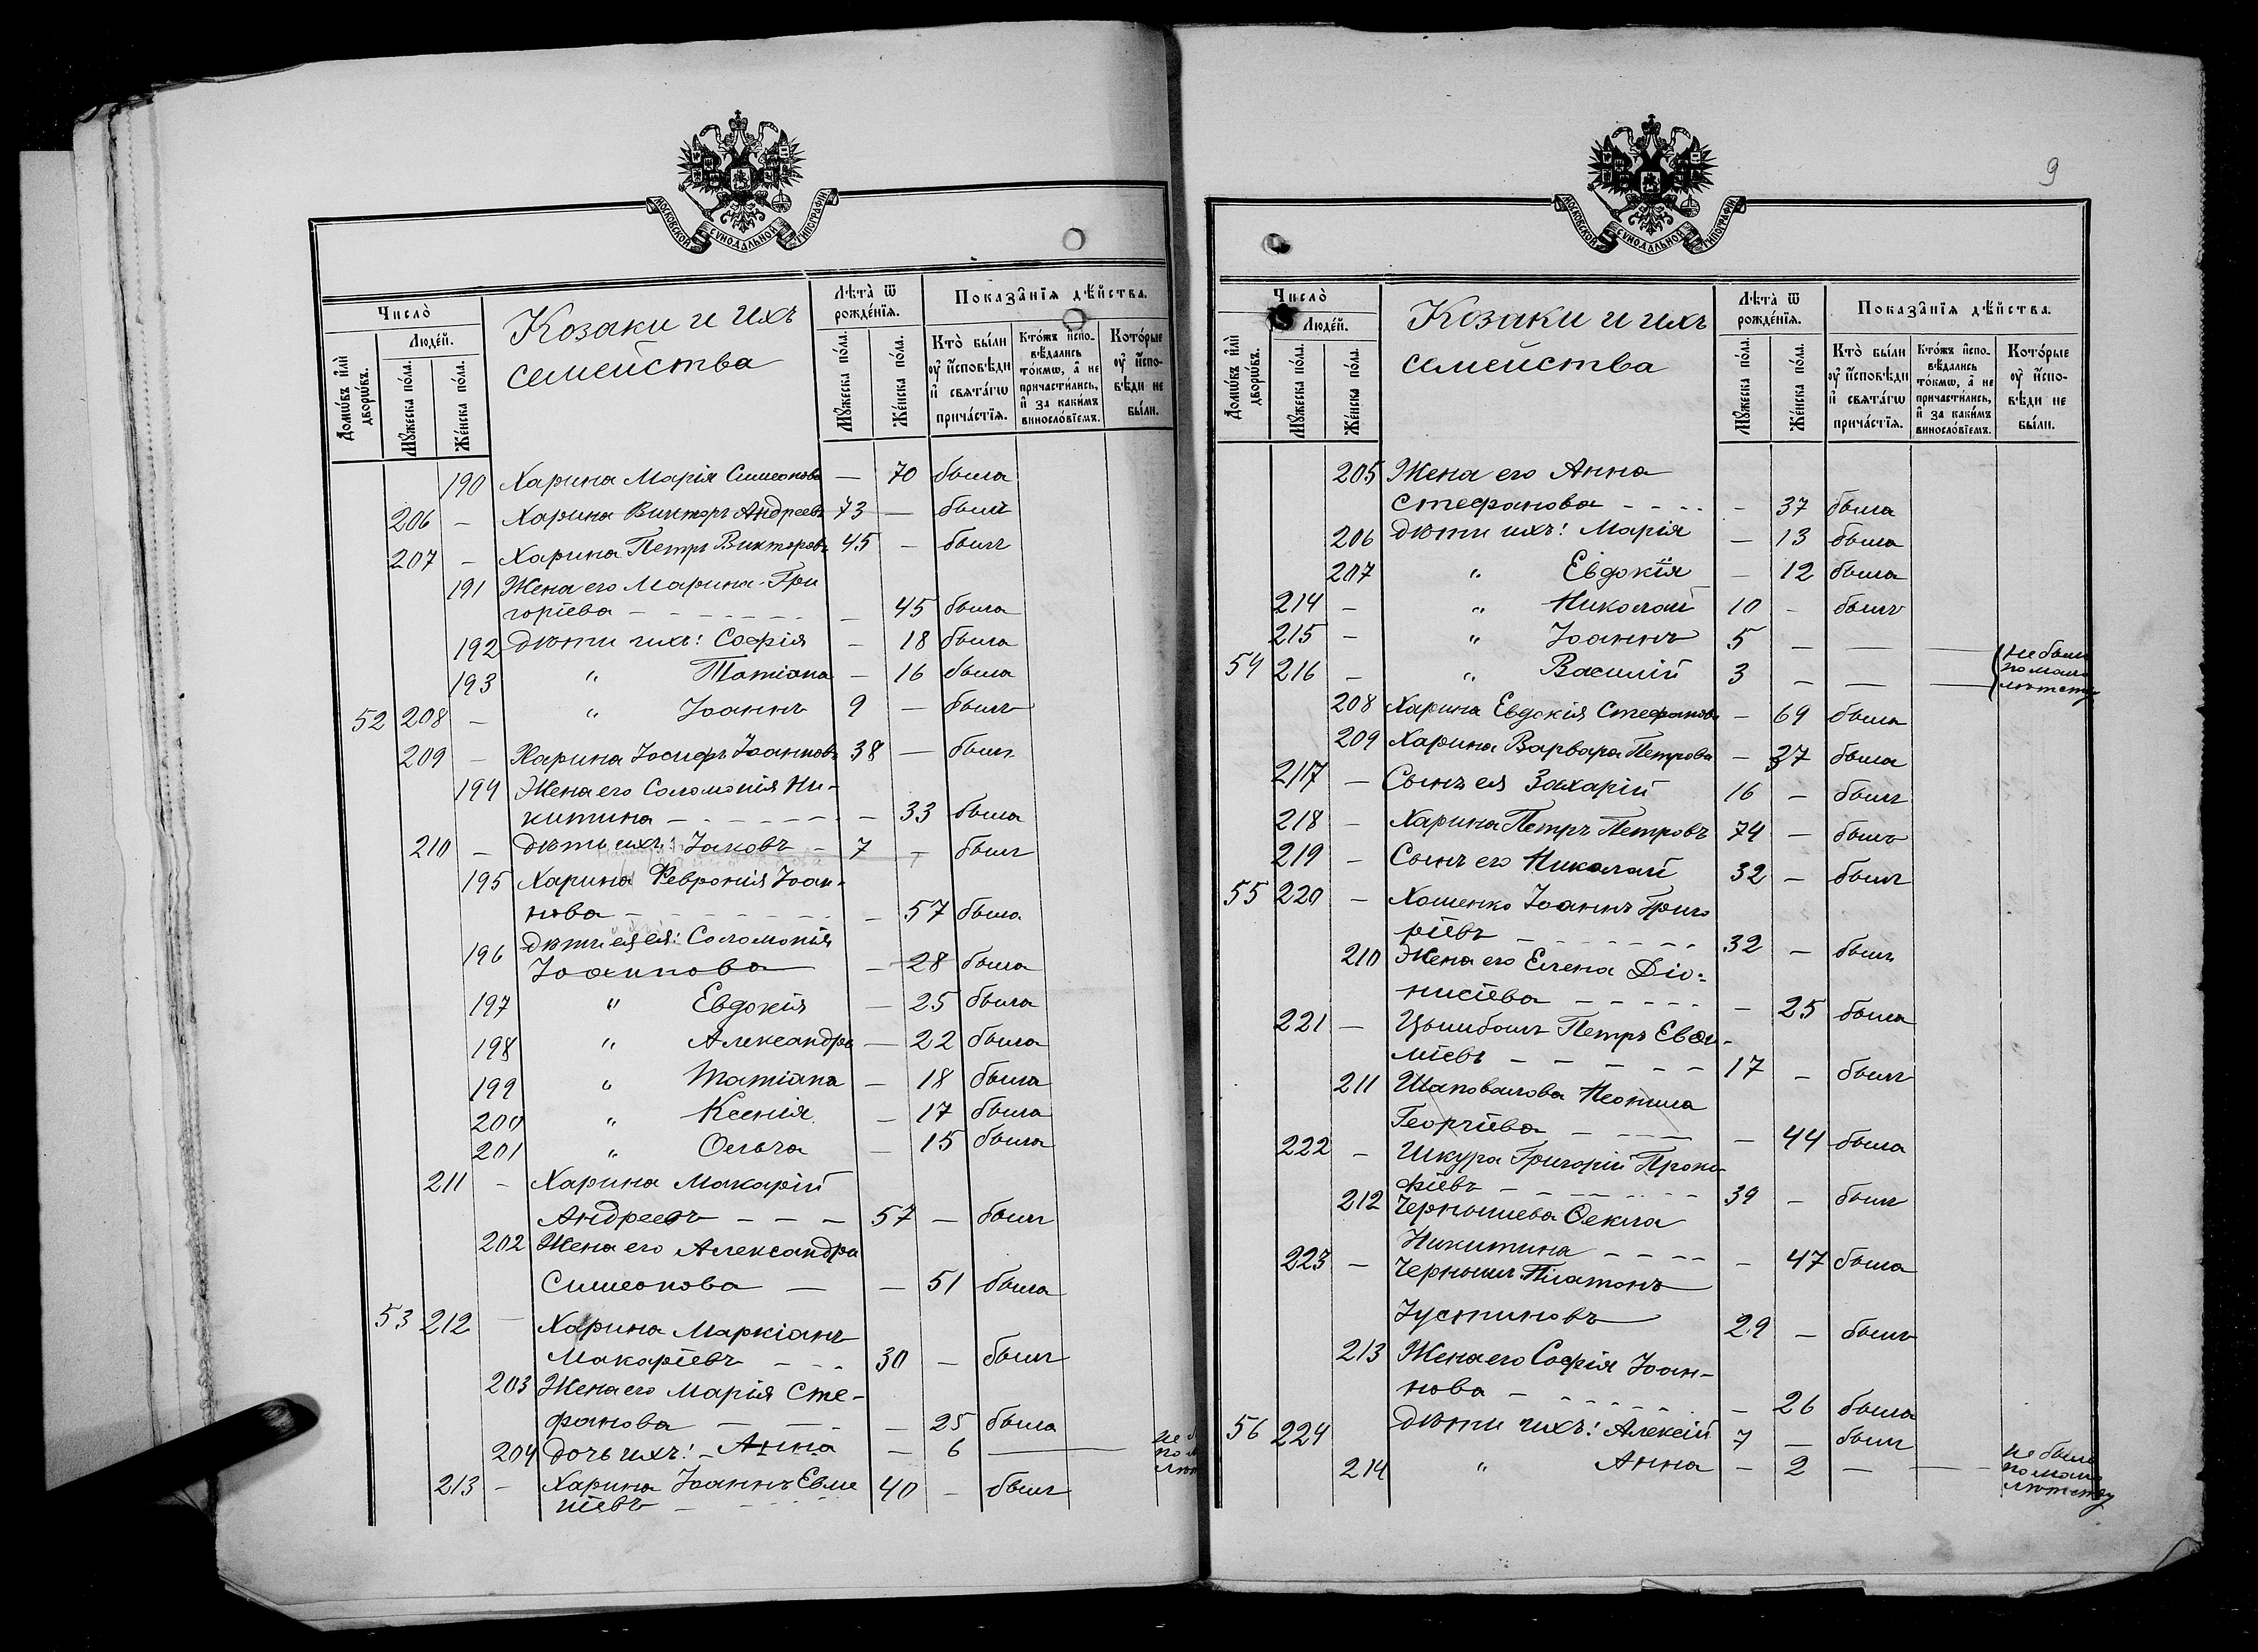 МОСКОВСКОЙ СѴНОДАЛЬНОЙ ТИПОГРАФІИ
Число̀
Людéй.
Домѡ́въ и҆лѝ дворѡ́въ.
Мꙋ́жеска по́ла.
Же́нска по́ла.
Козаки и ихъ
семейства
Лѣта̀ ѿ рожде́нїя.
Мꙋ́жеска по́ла.
Же́нска по́ла.
Показа̑нїѧ дѣ́йства.
Кто̀ бы́ли ᲂу҆ и҆сповѣди и҆ свѧта́гѡ прича́стїѧ.
Кто́жъ и҆спо-вѣ́дались то́кмѡ, а҆ не причасти́лись, и҆ за каки́мъ винослові́емъ.
Кото́рые ᲂу҆ и҆спо-вѣди не бы́ли.
190 Харина Марія Симеонова — 70 была
206 — Харина Викторъ Андреевъ 73 — былъ
207 — Харина Петръ Викторовъ 45 — былъ
191 Жена его Марина Гри
горіева — 45 была
192 Дѣти ихъ: Софія — 18 была
193 " Татіана — 16 была
52 208 — " Іоаннъ 9 — былъ
209 — Харина Іосифъ Іоанновъ 38 — былъ
194 Жена его Соломонія Ни-
китина — 33 была
210 — Дѣти ихъ: Іаковъ — 7 — былъ
195 Харина Февронія Іоан-
нова — 57 была
196 Дѣти ея: Соломонія
Іоаннова — 28 была
197 " Евдокія — 25 была
198 " Александра — 22 была
199 " Татіана — 18 была
200 " Ксенія — 17 была
201 " Ольга — 15 была
211 — Харина Макарій
Андреевъ — 57 — былъ
202 Жена его Александра
Симеонова — 51 была
53 212 — Харина Маркіанъ
Макаріевъ — 30 — былъ
203 Жена его Марія Сте-
фанова — 25 была
204 Дочь ихъ: Анна — 6 —
213 — Харина Іоаннъ Евме
ніевъ — 40 — былъ
9
МОСКОВСКОЙ СѴНОДАЛЬНОЙ ТИПОГРАФІИ
Число̀
Людéй.
Домѡ́въ и҆лѝ дворѡ́въ.
Мꙋ́жеска по́ла.
Же́нска по́ла.
Козаки и ихъ
семейства
Лѣта̀ ѿ рожде́нїя.
Мꙋ́жеска по́ла.
Же́нска по́ла.
Показа̑нїѧ дѣ́йства.
Кто̀ бы́ли ᲂу҆ и҆сповѣди и҆ свѧта́гѡ прича́стїѧ.
Кто́жъ и҆спо-вѣ́дались то́кмѡ, а҆ не причасти́лись, и҆ за каки́мъ винослові́емъ.
Кото́рые ᲂу҆ и҆спо-вѣди не бы́ли.
205 Жена его Анна
Стефанова — 37 была
206 Дѣти ихъ: Марія — 13 была
207 " Евдокія — 12 была
214 — " Николай 10 — былъ
215 — " Іоаннъ 5 — — —
54 216 — " Василій 3 — — — не были по мало лѣтству
208 Харина Евдокія Стефанова — 69 была
209 Харина Варвара Петрова — 37 была
217 — Сынъ ея Захарій 16 — былъ
218 — Харина Петръ Петровъ 74 — былъ
219 — Сынъ его Николай 32 — былъ
55 220 — Хоменко Іоаннъ Григо
ріевъ — 32 — былъ
210 Жена его Елена Діо-
нисіева — 25 была
221 — Цымбалъ Петръ Евѳи-
міевъ — 17 — былъ
211 Шаповалова Неонила
Георгіева — 44 была
222 — Шкура Григорій Проко
фіевъ — 39 — былъ
212 Чернышева Ѳекла
Никитина — 47 была
223 — Чернышъ Платонъ
Іустиновъ 29 — былъ
213 Жена его Софія Іоан-
нова — 26 была
56 224 Дѣти ихъ: Алексій 7 — былъ
214 " Анна — 2 — — не была по мало лѣтству